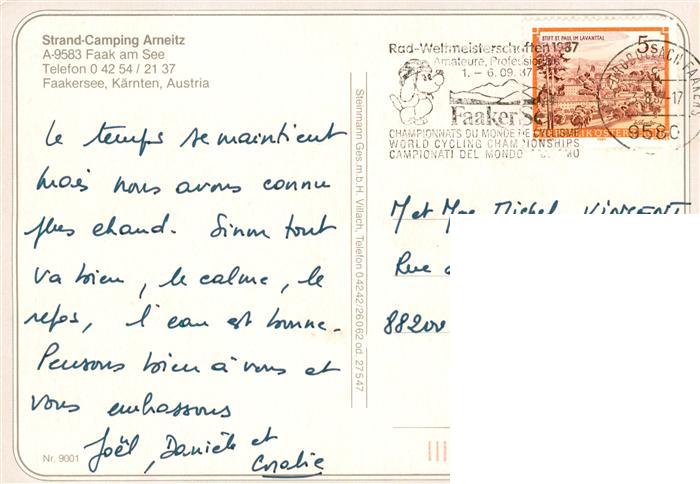 Strand-Camping Arneitz
A-9583 Faak am See
Telefon 0 42 54 / 21 37
Faakersee, Kärnten, Austria
Rad-Weltmeisterschaften 1987
Amateure, Professionals
1. – 6. 09. 87
Faaker See
CHAMPIONNATS DU MONDE DE CYCLISME
WORLD CYCLING CHAMPIONSHIPS
CAMPIONATI DEL MONDO
STIFT ST. PAUL IM LAVANTTAL
5
9580
le temps se maintient
mais nous avons connu
plus chaud. Sinon tout
va bien, le calme, le
repos, l'eau est bonne.
Pensons bien à vous et
vous embrassons
Joël, Danièle et
Coralie
Steinmann Ges.m.b.H. Villach, Telefon 04242/26062 od. 27547
M et Mme Michel VINCENT
Rue
88200
Nr. 9001